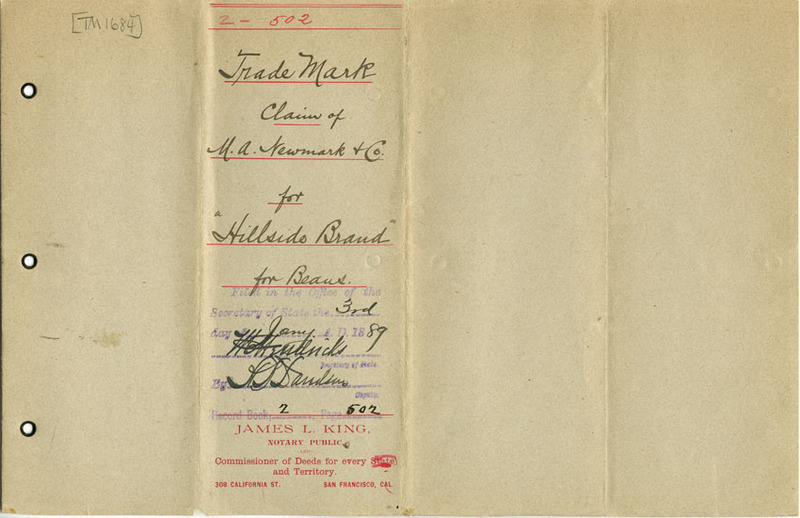 [TM1684]
2 - 502
Trade Mark
Claim of
M. A. Newmark & Co.
for
"Hillside Brand"
for Beans.
Filed in the Office of the
Secretary of State the 3rd
day Jany A. D. 1889
W C Hendricks
Secretary of State.
By
Deputy.
Record Book 2 Page 502
JAMES L. KING,
NOTARY PUBLIC
Commissioner of Deeds for every State
and Territory.
308 CALIFORNIA ST. SAN FRANCISCO, CAL